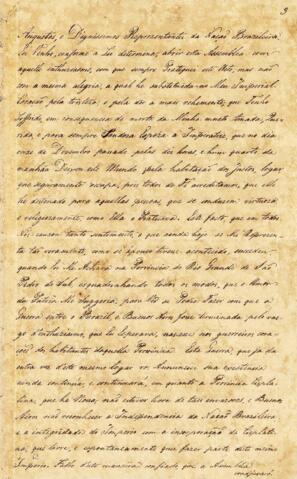 3
Augustos, e Dignissimos Representantes da Nação Brazileira.
Eu Venho, conforme a Lei determina, abrir esta Assemblea com
aquelle enthusiasmo, com que sempre Pratiquei este Acto, mas não
com a mesma alegria, a qual he substituida no Meu Imperial
Coração pela tristeza, e pela dor a mais vehemente, que Tenho
Sofrido, em consequencia da morte da Minha muito Amada, Que-
rida, e para sempre Saudosa Espoza a Imperatriz, que no dia
onze de Dezembro passado pelas dez horas, e hum quarto da
manhãa Deixou este Mundo pela habitação dos justos, lugar
que seguramente occupa, pois todos da Fé acreditamos, que elle
he destinado para aquellas pessoas, que se conduzem, virtuosa,
e religiosamente, como Ella o Praticava. Este facto, que em todos
Nós causou tanto sentimento, e que ainda hoje se Me reprezen-
ta tão vivamente, como se apenas tivesse acontecido, succedeu
quando Eu Me Achava na Provincia do Rio Grande de São
Pedro do Sul, esquadrinhando todos os modos, que o Amor
da Patria Me Suggeria, para vêr se Podia Fazer com que a
Guerra entre o Brazil, e Buenos Ayres fosse terminada pelo va-
lor d'enthusiasmo, que Eu Esperava, nascesse nos guerreiros cora-
ções dos habitantes daquella Provincia. Esta Guerra, que já da
outra vez deste mesmo lugar vos Annunciei, sua existencia
ainda continua, e continuará, em quanto a Provincia Cispla-
tina, que he Nossa, não estiver livre de taes invasores, e Buenos
Ayres não reconhecer a Independencia da Nação Brazileira
e a integridade do Imperio com a incorporação da Cisplati-
na, que livre, e espontaneamente quiz fazer parte deste mesmo
Imperio. Fallo desta maneira confiado, que a Assemblea
coadjuvará